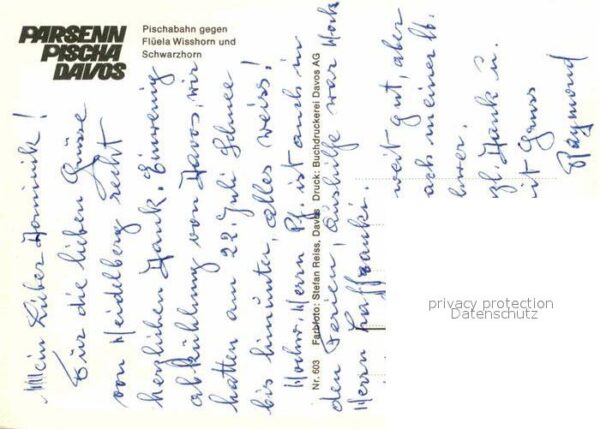 PARSENN
PISCHA
DAVOS
Pischabahn gegen
Flüela Wisshorn und
Schwarzhorn
Mein Lieber Dominik!
Für die lieben Grüsse
von Heidelberg recht
herzlichen Dank. Ein wenig
abkühlung von Davos, wir
hatten am 22. Juli Schnee
bis hinunter, alles weiss!
Hochw. Herrn Pf. ist auch in
den Ferien, Aushilfe war Hoch
Herrn
Nr. 603 Farbfoto: Stefan Reiss, Davos Druck: Buchdruckerei Davos AG
weit gut, aber
ach meiner lb.
wer.
zl. Dank u.
it Gruss
Raymond
privacy protection
Datenschutz